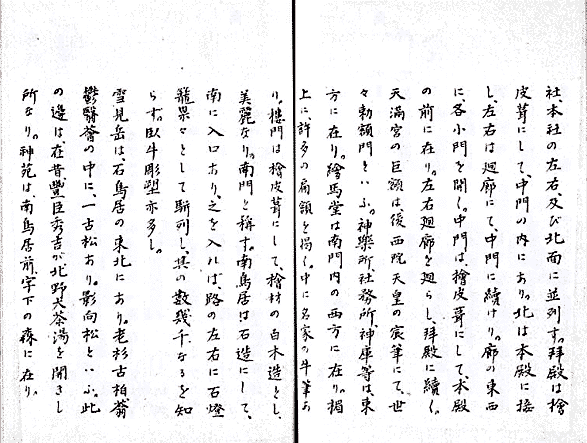 社、本社の左右、及び北面に並列す。拜殿は檜
皮葺にして、中門の内にあり。北は本殿に接
し、左右は廻廊にて、中門に續けり。廊の東西
に、各小門を開く。中門は、檜皮葺にして、本殿
の前に在り。左右廻廊を廻らし、拜殿に續く。
天滿宮の巨額は、後西院天皇の宸筆にて、世
々勅額門といふ。神樂所、社務所、神庫等は東
方に在り。繪馬堂は南門内の西方に在り。楣
上に、許多の扁額を揭く。中に名家の筆あ
り。樓門は檜皮葺にして、檜材の白木造とし、
美麗なり。南門と稱す。南鳥居は石造にして、
南に入口あり、之を入れば、路の左右に石燈
籠累々として駢列し、其の數幾千なるを知
らず。臥牛彫塑亦多し。
雪見岳は、石鳥居の東北にあり。老杉古柏蓊
鬱翳薈の中に、一古松あり。影向松といふ。此
の邊は、在昔豐臣秀吉が北野大茶湯を開きし
所なり。神苑は、南鳥居前、字下の森に在り。